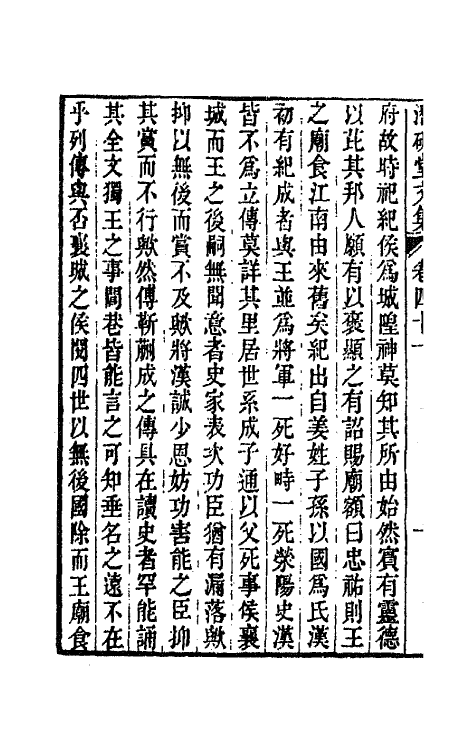 潛研堂文集 卷四十一
府故時祀紀侯為城隍神莫知其所由始然實有靈德
以芘其邦人願有以褒顯之有詔賜廟額曰忠祐則王
之廟食江南由來舊矣紀出自姜姓子孫以國為氏漢
初有紀成者與王並為將軍一死好畤一死滎陽史漢
皆不為立傳莫詳其里居世系成子通以父死事侯襄
城而王之後嗣無聞意者史家表次功臣猶有漏落歟
抑以無後而賞不及歟將漢誠少恩妨功害能之臣抑
其賞而不行歟然傅靳蒯成之傳具在讀史者罕能誦
其全文獨王之事閭巷皆能言之可知垂名之遠不在
乎列傳與否襄城之侯閱四世以無後國除而王廟食